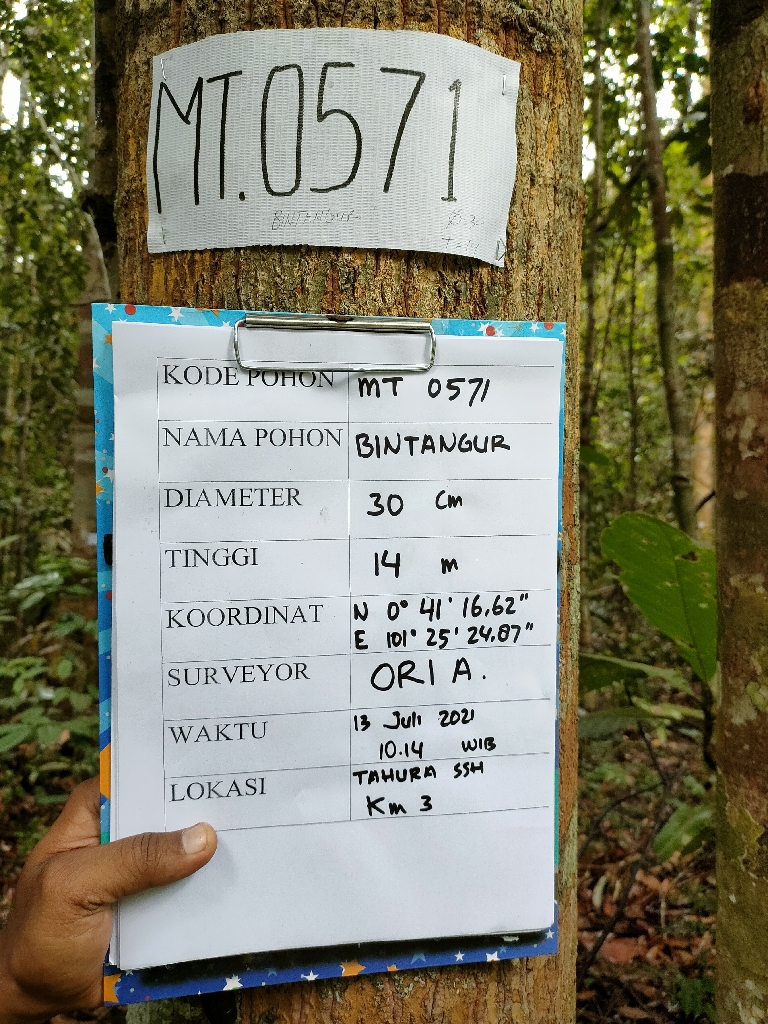 MT.0571
BINTANGUR
KODE POHON MT 0571
NAMA POHON BINTANGUR
DIAMETER 30 Cm
TINGGI 14 m
KOORDINAT N 0° 41' 16.62"
E 101° 25' 24.87"
SURVEYOR ORI A.
WAKTU 13 Juli 2021
10.14 WIB
LOKASI TAHURA SSH
Km 3